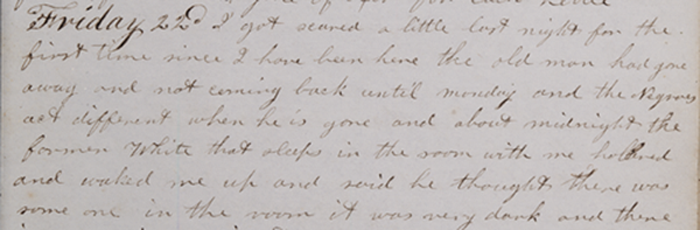 Friday 22d I got scared a little last night for the
first time since I have been here the old man had gone
away and not coming back until monday and the Negroes
act different when he is gone and about midnight the
former White that sleeps in the room with me hollered
and waked me up and said he thought there was
some one in the room it was very dark and there